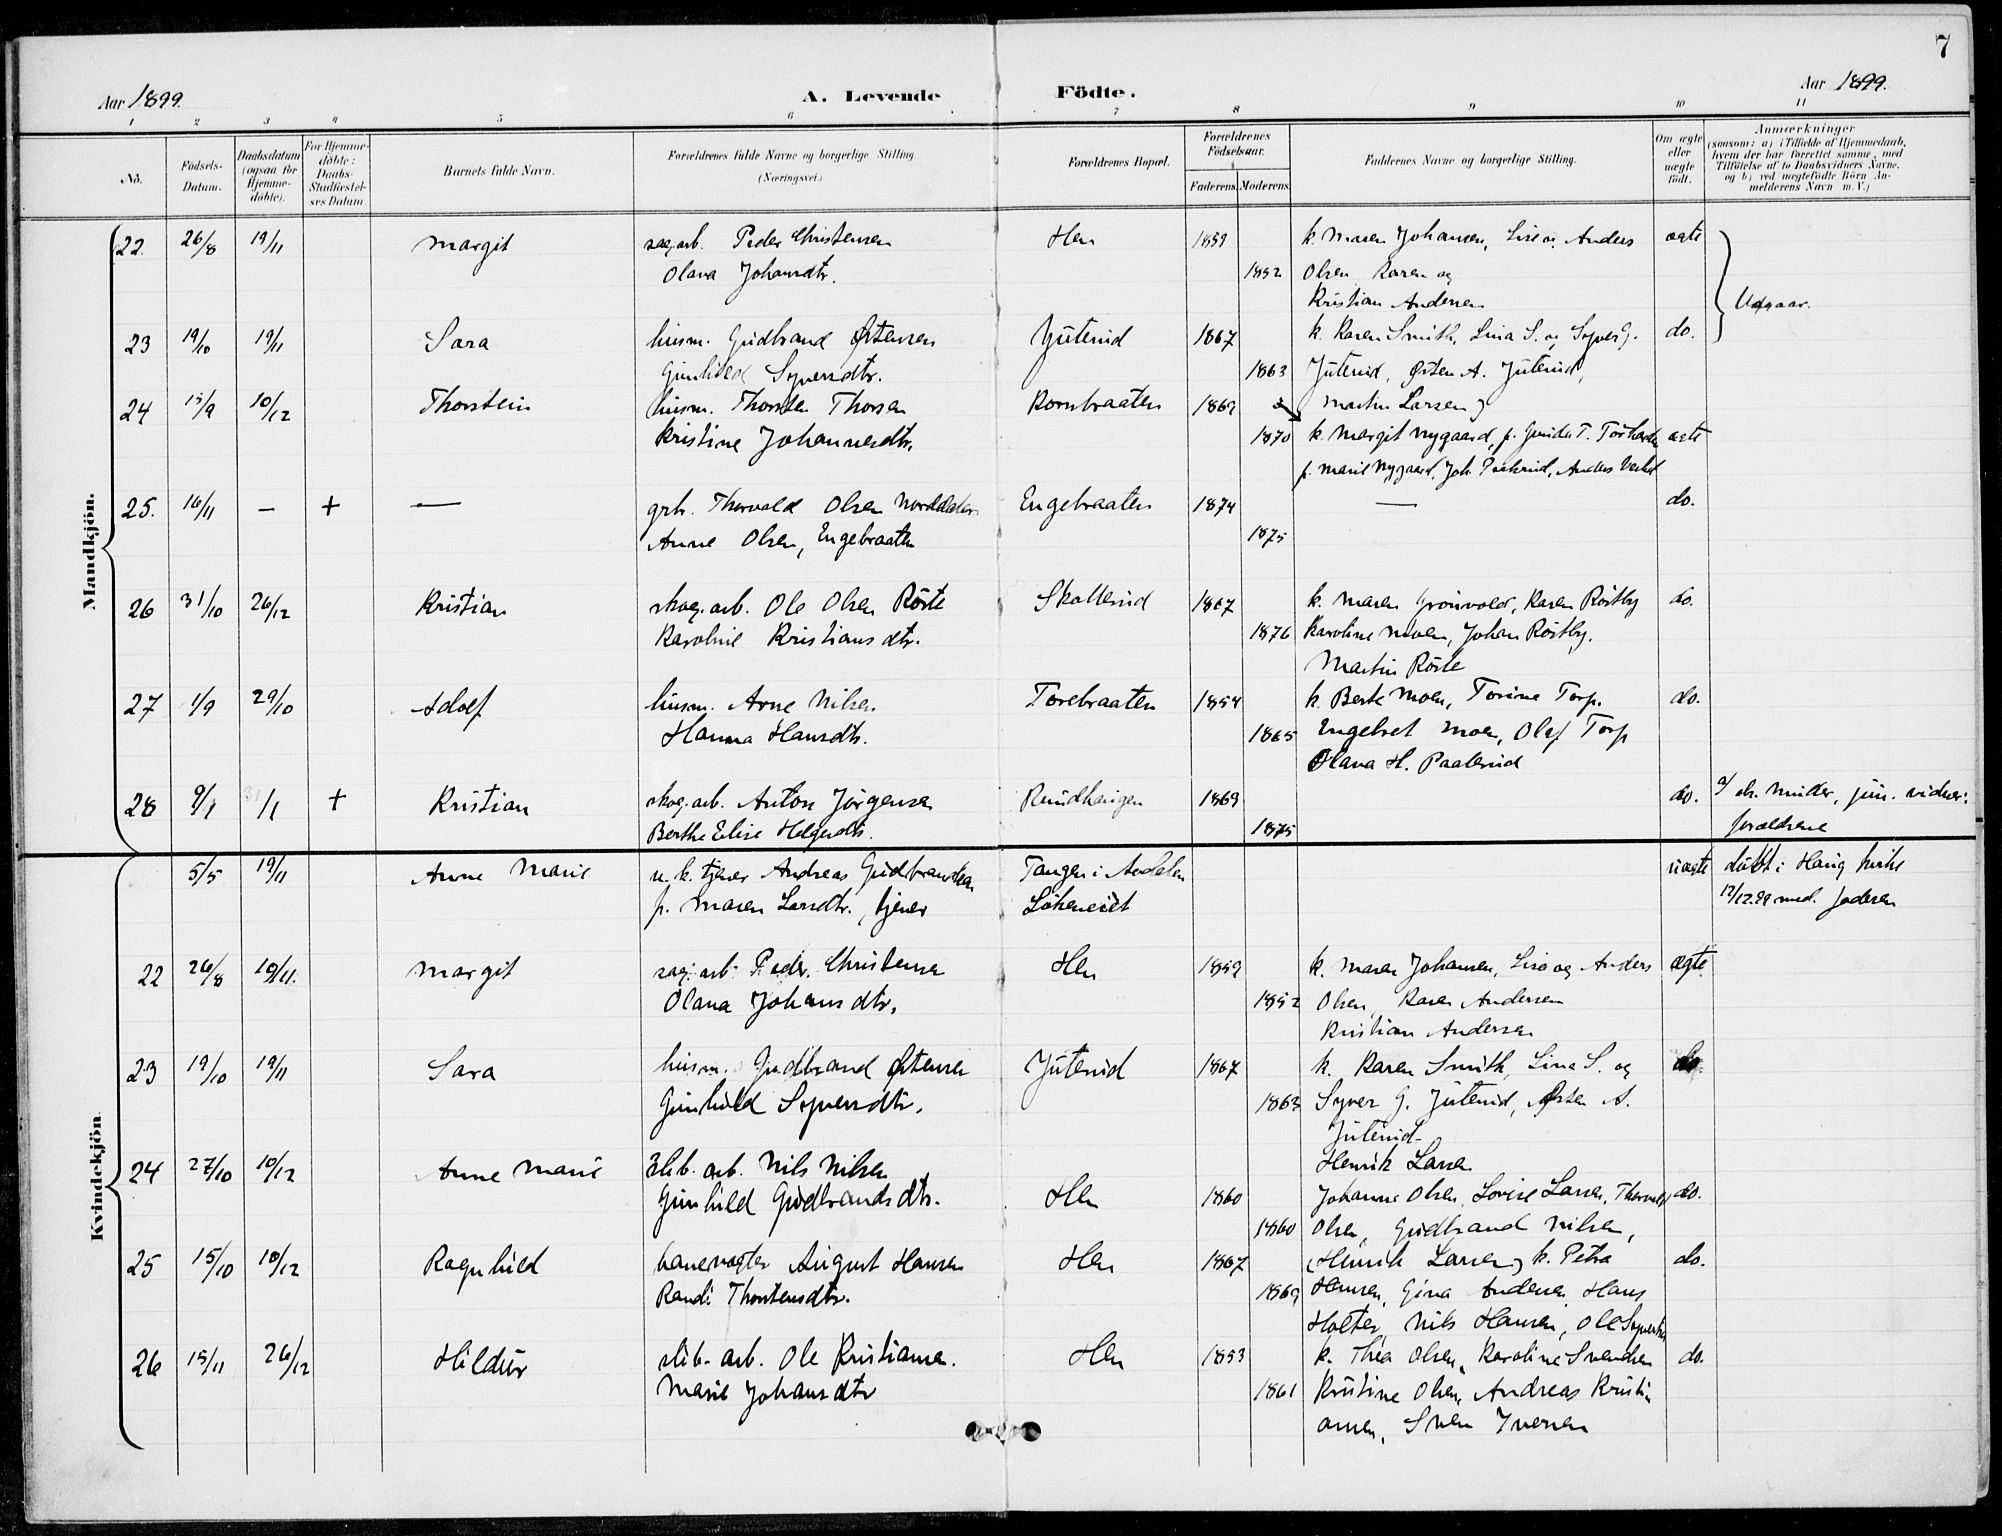 7
Aar 1899. A. Levende Födte. Aar 1899.
1 2 3 4 5 6 7 8 9 10 11
No. Födsels-Datum. Daabsdatum (ogsaa for Hjemme-döbte). For Hjemme-döbte: Daabs-Stadfæstel-ses Datum. Barnets fulde Navn. Forældrenes fulde Navne og borgerlige Stilling. (Næringsvei.) Forældrenes Bopæl. Forældrenes Födselsaar. Faderens. Moderens. Faddernes Navne og borgerlige Stilling. Om ægte eller uægte födt. Anmærkninger (saasom: a) i Tilfælde af Hjemmedaab, hvem der har forrettet samme, med Tilföielse af to Daabsvidners Navne. og b) ved uægtefödte Börn An-melderens Navn m. V.)
Mandkjön.
22. 26/8 19/11 Margit sag.arb. Peder Christensen Hen 1859 k. Maren Johansen, Lise og Anders ægte
Olava Johansdtr. 1852 Olsen, Karen og
Kristian Andersen Udgaar.
23 19/10 19/11 Sara husm. Gudbrand Østensen Juterud 1867 k. Karen Smith, Lina S. og Syver G. do.
Gunhild Syversdtr. 1863 Juterud, Østen A. Juterud,
24 15/9 10/12 Thorstein husm. Thorsten Thorsen Kornbraaten 1869 Martin Larsen)
Kristine Johannesdtr. 1870 k. Margit Nygaard, p. Gunda T. ægte
p. Marie Nygaard, Joh. Anders
25. 16/11 – + — grbr. Thorvald Olsen Engebraaten 1874 — do.
Anne Olsen, Engebraaten 1875
26 31/10 26/12 Kristian skog.arb. Ole Olsen Röste Skollerud 1867 k. Maren Grönvold, Karen Röstby do.
Karoline Kristiansdtr. 1876 Karoline Moen, Johan Röstby.
Martin Röste
27 1/9 29/10 Adolf husm. Arne Nilsen Torebraaten 1854 k. Berte Moen, Torine Torp. do.
Hanna Hansdtr. 1865 Engebret Moen, Olaf Torp
Olava H. Paalerud
28 9/1 /1 + Kristian skog.arb. Anton Jörgensen Rundhaugen 1869 do. a/ chr. Minder, jun. vidner:
Berthe Elise Helgesdtr. 1875 forældrene
Kvindekjön
5/5 19/11 Anne Marie u.k. tjener Andreas Gudbrandsen Tangen i Aadalen uægte döbt i Haug kirke
p. Maren Larsdtr., tjener Lökeneiet 17/12.99 med. faderen
22 26/8 19/11. Margit sag.arb. Peder Christensen Hen 1859 k. Maren Johansen, Lise og Anders ægte
Olava Johansdtr. 1852 Olsen, Karen Andersen
Kristian Andersen
23 19/10 19/11 Sara husm. Gudbrand Østensen Juterud 1867 k. Karen Smith, Lina S. og do.
Gunhild Syversdtr. 1863 Syver G. Juterud, Østen A.
Juterud
24 27/10 10/12 Anne Marie slib.arb. Nils Nilsen Henrik Larsen
Gunhild Gudbrandsdtr. Hen 1860 Johanne Olsen, Lovise Larsen, Thorvald do.
1860 Olsen, Gudbrand Nilsen,
25 15/10 10/12 Ragnhild banevogter August Hansen Hen 1867 (Henrik Larsen) k. Petra do.
Randi Thorstensdtr. 1869 Hansen, Gina Andersen, Hans
Holter, Nils Hansen, Ole
26 15/11 26/12 Hildur slib.-arb. Ole Kristiansen. Hen 1853 k. Thea Olsen, Karoline Svendsen do.
Marie Johansdtr 1861 Kristine Olsen, Andreas Kristi
ansen, Sven Iversen